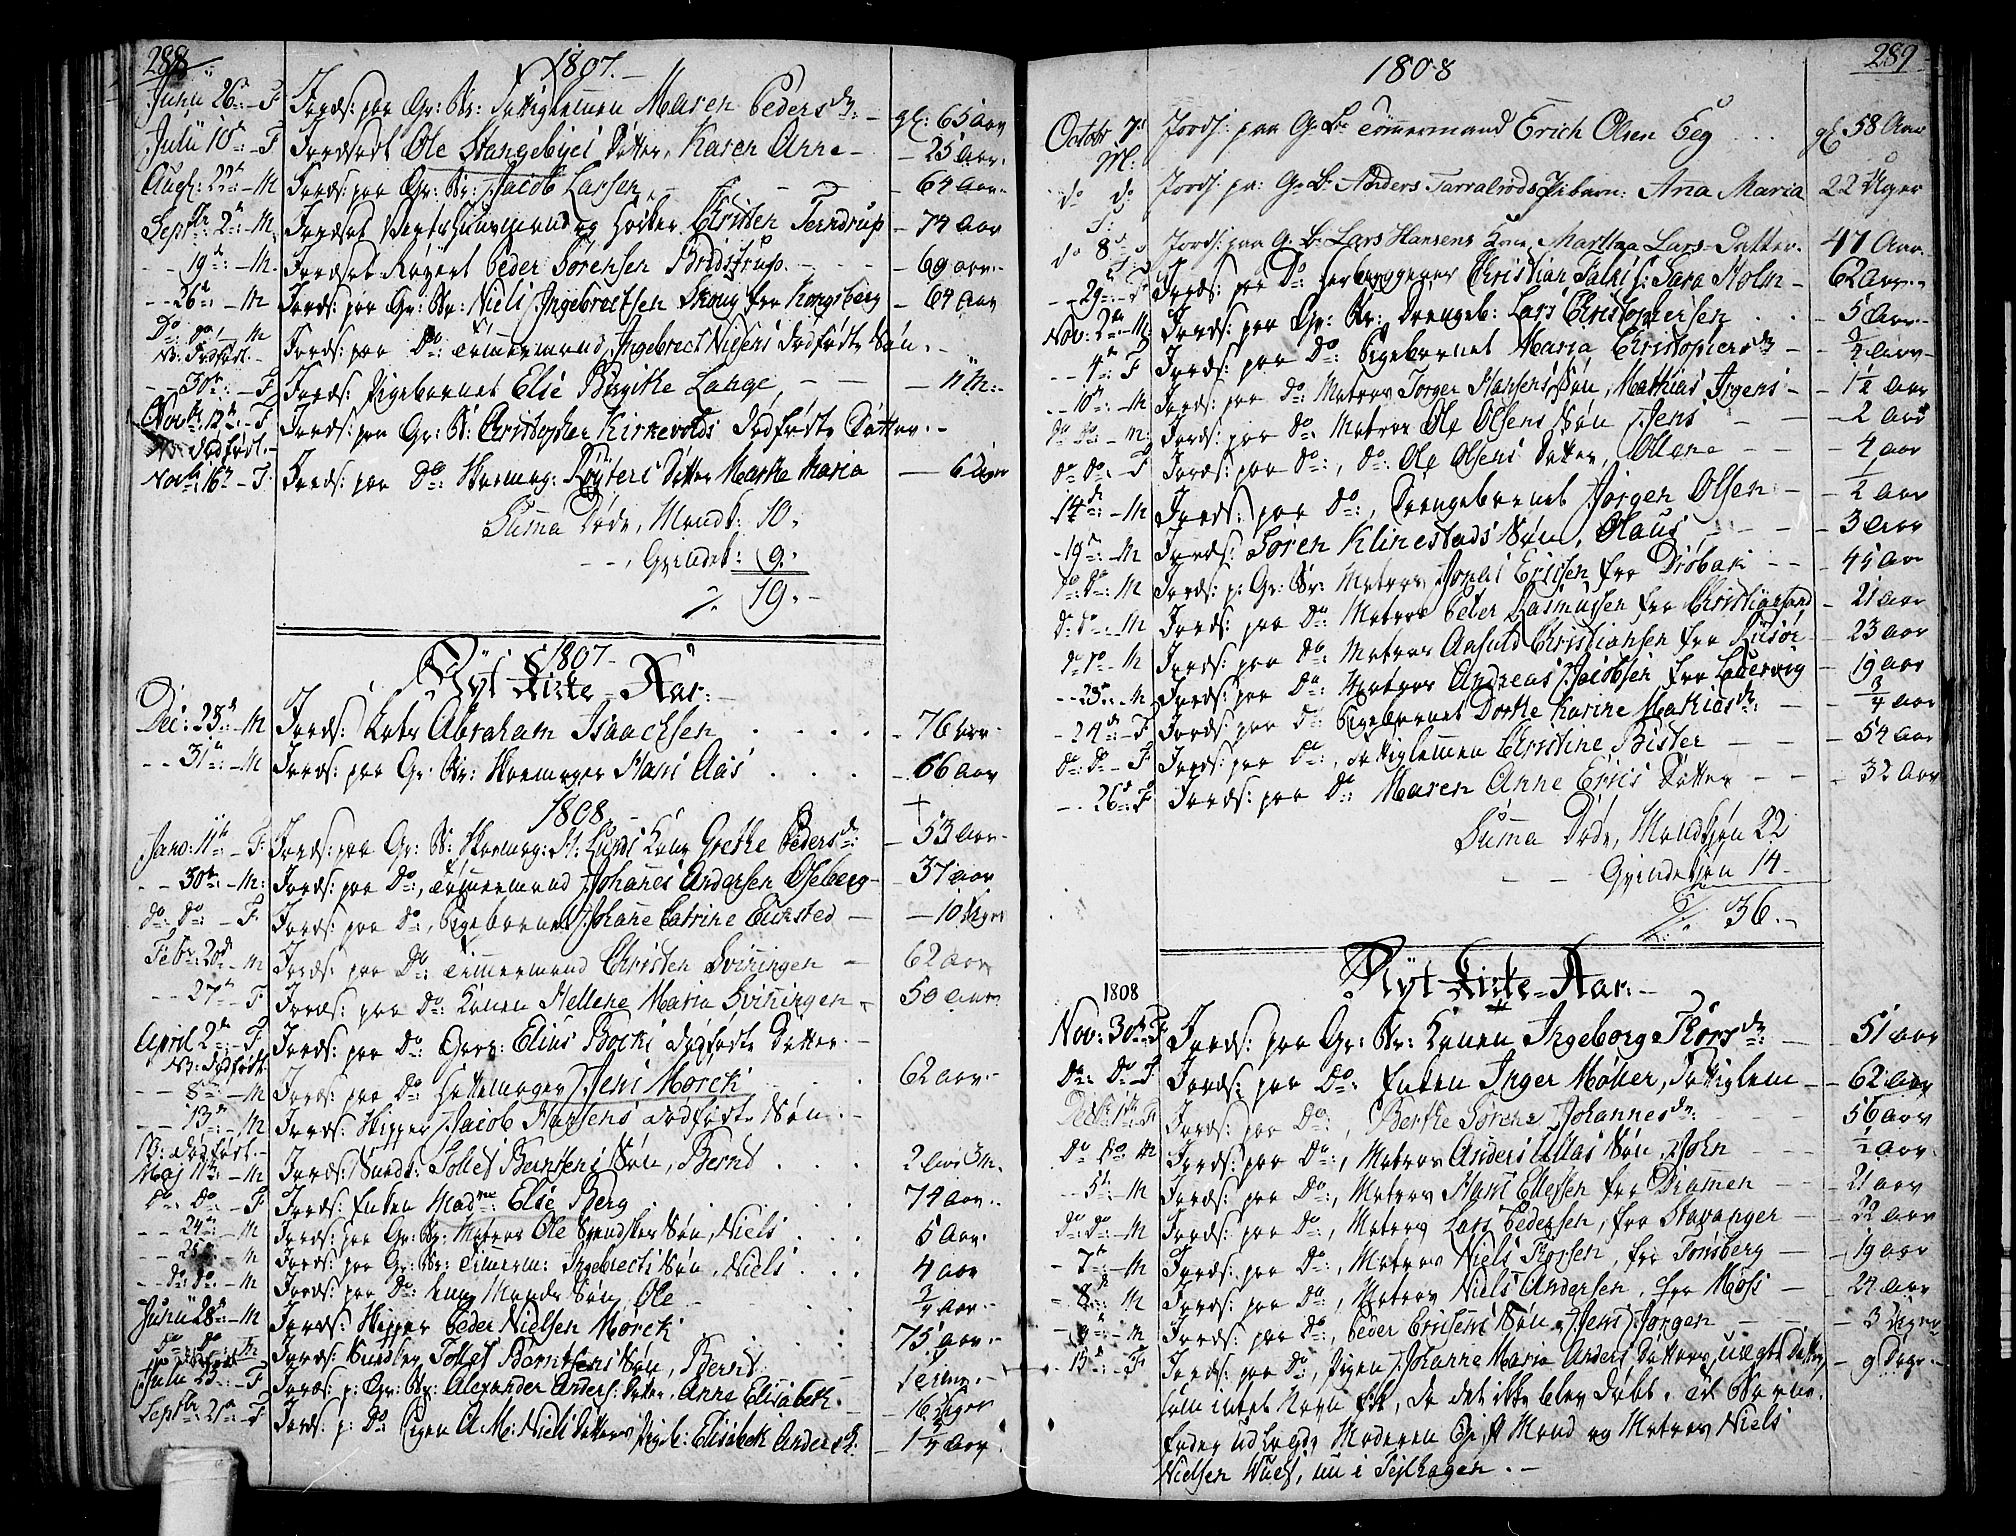 288
1807.
Junii 26 – F Jordf: paa Gr: Bk: Fattiglemmen Maren Peders dr: – gl: 65 Aar
Julii 10 – F Jordfæstet Ole Stangebyes Datter, Karen Anne – – 25 Aar.
Aug: 22 – M Jords: paa Gr: Bk: Jacob Larsen – 64 Aar.
Septbr 2 – M. Jordfæstet Høeker Christen Terndrup – 74 Aar
– – 19 – M. Jordfæstet Peder Sørensen Bridstrup. – 69 aar.
– – 26 – M Jords: paa Gr: Br: Niels Ingebretsen Skoug fra Kongsberg – 64 Aar
Do: do – M
NB: Dødfødt. Jords: paa Do: Tømmermand Ingebrect Nilsens dødfødte Søn. –
– – 30 – F Jords: Pigebarnet Else Birgithe Lange – 11 M: –
Novbr 12 – F Jords: paa Gr: B: Christopher Kirkevolds dødfødte Datter. –
NB dødfødt. –
Novbr: 16 – F Jords: paa Do: Skomag: Røyters Datter Marthe Maria – 6 Uger
Suma Døde, Mandk: 10.
– – , Qvindek: 9.
19. –
1807.
Nyt Kirke-Aar. –
Dec: 23 – M Jords: Abraham Isaachsen – 76 aar.
– – 31 – M Jords: paa Gr: Br: Skomager Hans Aas – 66 Aar
1808.
Janv: 11 – F. Jords: paa Gr: B: Skomag: H. Lunds Kone Grethe Peders dr: – 53 Aar.
– – 30 – M: Jords: paa Do:, Tømmermand Johannes Andersen Oseberg – 37 aar
do: Do: – F. Jords: paa Do:, Pigebarnet Johanne Catrine – 10 Uger
Febr: 20 – M Jords: paa Do: Timmermand Christen Sviningen – 62 aar
– – 27 – F Jords: paa Do: Konen Hellene Maria Sviningen – 50 Aar.
April 2 – F. Jords: paa Do: Elias Bochs dødfødte Datter. –
NB: Dødfødt
– – 8 – M Jords: paa Do: Hattemager Jens Mørch – 62 aar. –
– – 13 – M Jords: Skipper Jacob Hansens dødfødte Søn. –
NB: dødfødt. –
Maj 11 – M Jords: Tollef Berntsens Søn, Bernd 2 Aar 3 M.
Do Do: – F Jords: Enken Madme: Else Berg 74 Aar.
– – 24 – M Jords: paa Gr: Br: Matros Ole Søn, Niels 5 Aar.
– M Jords: paa Gr: Br: Timmerm: Ingebrecths Søn, Niels 4 aar
– – do: do: – M Jords: paa Do: Søn, Ole 3/4 Aar. –
Junii 28 – M Jords: Skipper Peder Nielsen Mørch 75 aar. –
Jords: Tollef Berntsens Søn, Bernd
Julii 25 – F Jords: p: Gr: Br: Alexander Anders: Datter, Anne Elisabeth. – 16 Uger
Septbr 21 – F Jords: p: Do Pigen A. M: Niels Datters Pigeb: Elisabeth Anders dr: – 1 1/4 Aar.
289
1808
Octobr 7 M: Jords: paa G. B: Tömmermand Erich Olsen Eeg gl 58 Aar
do do: Jords: pa: G. B: Anders Tarralrøds Pibarn: Ana Maria 22 Uger
do 8 Jords: paa G. B: Lars Hansens Kone Martha Lars Datter. 47 Aar.
– – 29 – F Jords: paa Do: Christian Falks E: Sara Holm – 62 Aar. –
Nov: 2 – M. Jords: paa Gr: Br: Drengeb: Lars Christophersen 5 Aar –
– – 4 F Jords: paa Do: Pigebarnet Maria Christophersdr – 3/4 Aar –
– – 10 – M Jords: paa Do: Matros Jørger Hansens Søn, Mathias Jrgens – – 1 1/2 Aar
do do – M: Jords: paa Do: Matros Ole Olsens Søn Jens – 2 Aar
do Do: – F Jords: paa Do:, Do: Ole Olsens Datter, Ollene – 4 Aar
14 – M Jords: paa Do:, Drengebarnet Jørgen Olsen – 1/2 Aar
– 19 – M Jords: Søren Klinestads Søn, Olaus – 3 Aar
do: Do – M Jords: p: Gr: Br: Matros Jonas Ericsen fra Drøbak – – 45 Aar
d: Do – M Jords: paa Do: Matros Peder Rasmussen fra Christiansand – 21 Aar
do Do – M Jords: paa Do: Matros Christiansen fra Riisør – 23 Aar
– – 23 – M Jords: paa Do: Matros Andreas Jacobsen fra Laurvig – 19 Aar
– 24 – F Jords: paa Do Pigebarnet Dorthe Karine Mathiasdr: – 3/4 Aar
do: Do – F Jords: paa Do:, Fattiglemmen Christine Bister – 54 Aar
– – 26: F Jords: paa Do: Maren Anne Erics Datter – 32 Aar
Suma Døde, Mandkjøn 22
– – Qvindekjøn 14
36. –
Nyt Kirke-Aar. –
1808
Nov: 30 F Jords: paa Gr: Br: Konen Ingeborg Thorsdr: – 51 Aar
Do: Do – F Jords: paa Do: Enken Inger Møller, Fattiglem – – 62 Aar
Decbr 1 F Jords: paa Do:, Berthe Sørine Johannesdr: 56 Aar
Do Do M Jords: paa Do:, Matros Anders Ullas Søn, John – 1/2 Aar.
– – 5 – M Jords: paa Do:, Matros Hans Ellefsen fra Dramen – – 21 Aar
do: Do: – M Jords: paa Do:, Matros Lars Pedersen, fra Stavanger – – 22 Aar
– 7 – M Jords: paa Do:, Matros Niels Thorsen, fra Tønsberg – 19 Aar
– 8 M Jords: paa Do:, Matros Niels Andersen, fra Moss – 24 Aar
– 9 – M Jords: paa Do:, Peder Ericsens Søn Jens Jørgen – 3 Uger
– 15 F Jords: paa Do, Pigen Johanne Maria Anders Datters, uægte Datter – 9 Dage –
som intet Navn fik, da det ikke blev døbt. Til Barne-
fader udlagde Moderen Gift Mand og Matros Niels
Nielsen, nu i Fejlhagen. –